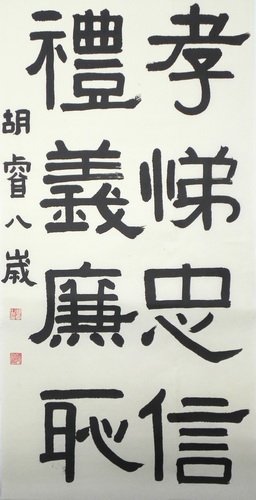 孝悌忠信
禮義廉恥
胡睿八歲